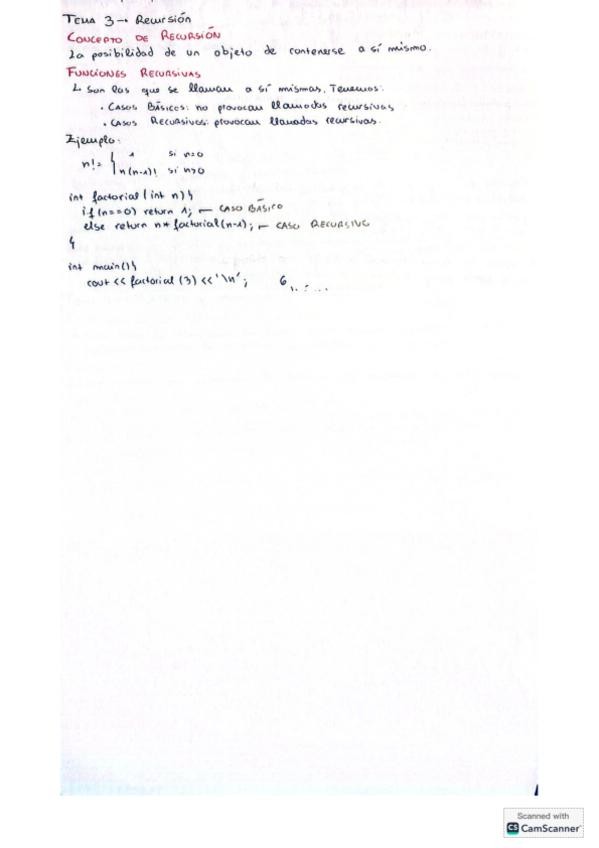 TEMA 3 → Recursión
CONCEPTO DE RECURSIÓN
La posibilidad de un objeto de contenerse a sí mismo.
FUNCIONES RECURSIVAS
↳ Son las que se llaman a sí mismas. Tenemos:
· CASOS BÁSICOS: no provocan llamadas recursivas
· CASOS RECURSIVOS: provocan llamadas recursivas.
Ejemplo:
n! = { 1 si n=0
n(n-1)! si n>0
int factorial (int n) {
if (n==0) return 1; ← CASO BÁSICO
else return n * factorial (n-1); ← CASO RECURSIVO
}
int main() {
cout << factorial (3) << '\n'; 6
Scanned with
CS CamScanner